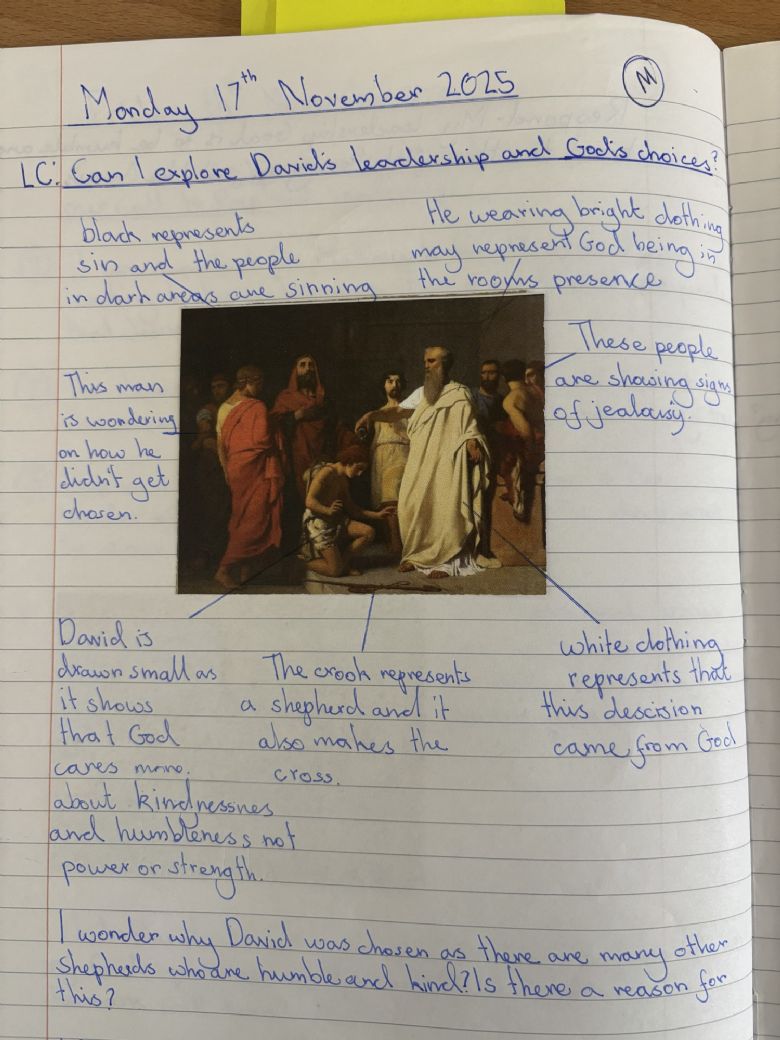 Monday 17th November 2025
M
LC: Can I explore David's leadership and God's choices?
black represents
sin and the people
in dark areas are sinning
He wearing bright clothing
may represent God being in
the rooms presence
These people
are showing signs
of jealousy.
This man
is wondering
on how he
didn't get
chosen.
David is
drawn small as
it shows
that God
cares more
about kindnessnes
and humbleness not
power or strength.
The crook represents
a shepherd and it
also makes the
cross.
white clothing
represents that
this descision
came from God
I wonder why David was chosen as there are many other
shepherds who are humble and kind? Is there a reason for
this?